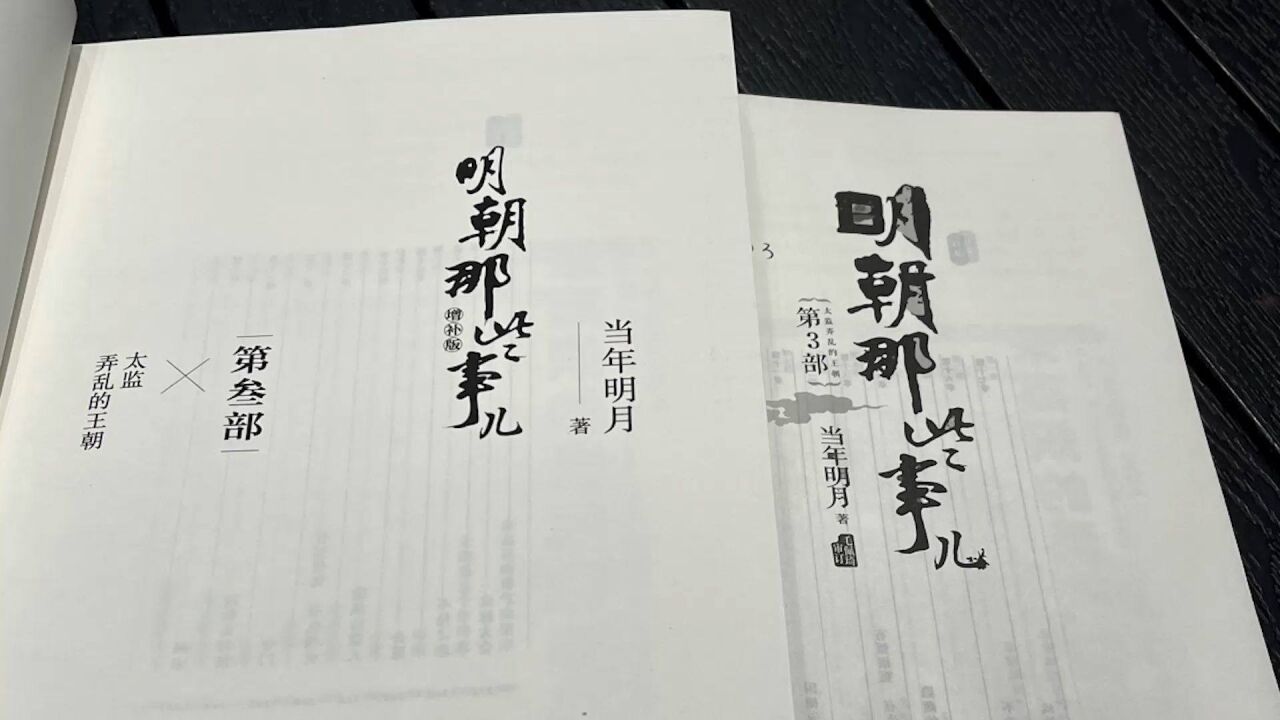 明朝那些事儿
增补版
当年明月
著
第叁部
太监
弄乱的王朝
明朝那些事儿
太监弄乱的王朝
第3部
当年明月
著
毛佩琦
审订